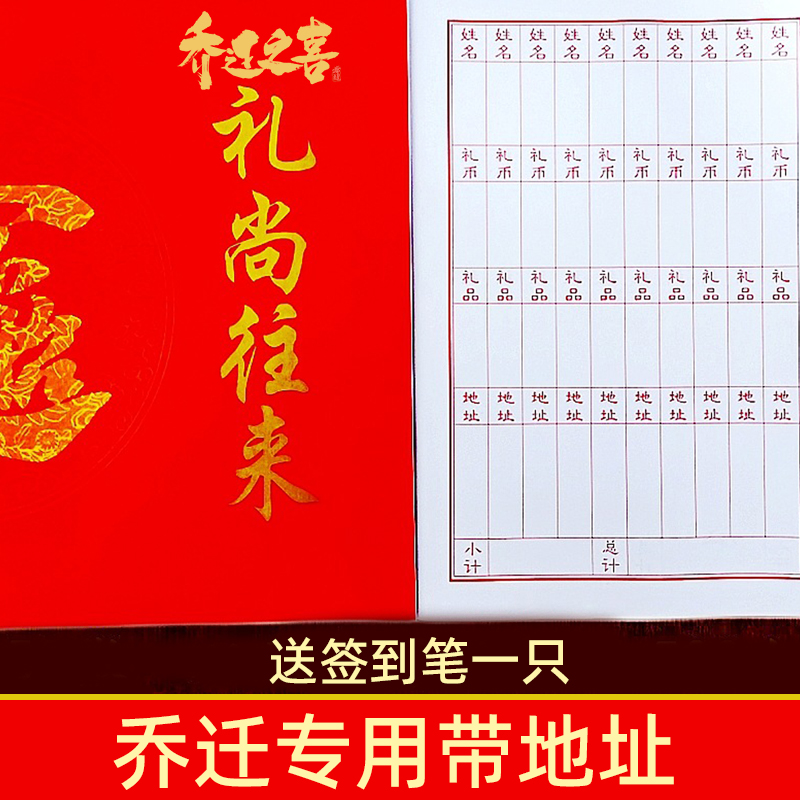 乔迁之喜
礼尚往来
姓名 姓名 姓名 姓名 姓名 姓名 姓名 姓名 姓名 姓名
礼币 礼币 礼币 礼币 礼币 礼币 礼币 礼币 礼币 礼币
礼品 礼品 礼品 礼品 礼品 礼品 礼品 礼品 礼品 礼品
地址 地址 地址 地址 地址 地址 地址 地址 地址 地址
小计 总计
送签到笔一只
乔迁专用带地址